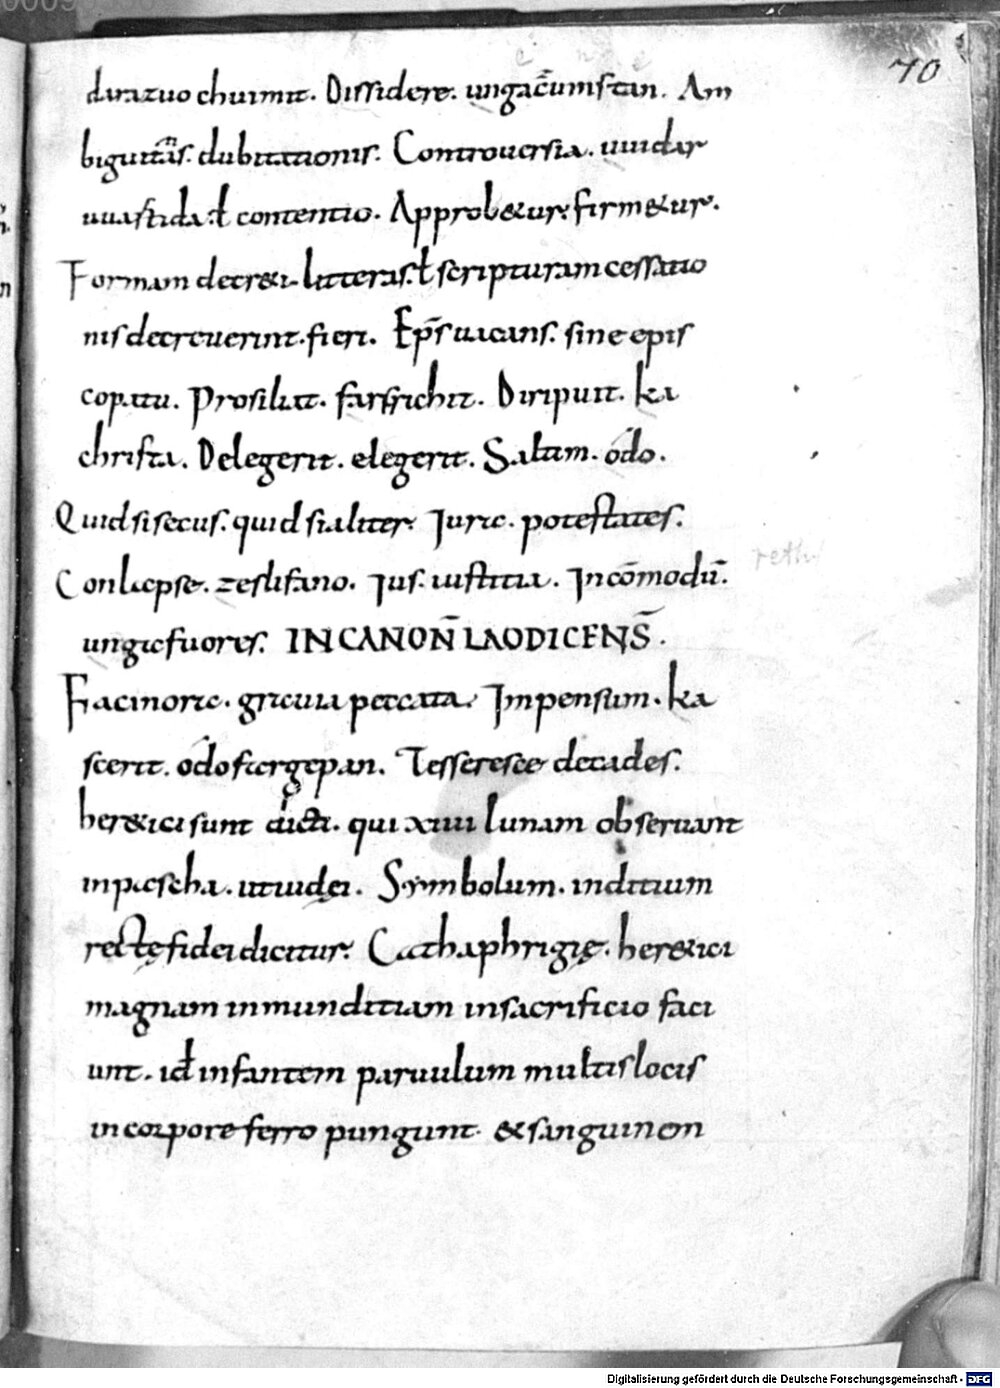 70
darazuo chuimit. Dissidere. ungac̄umftan. Am
biguitatis. dubitationis. Controuersia. uuidar
uuaftida. ł contentio. Approb&ur. firm&ur.
Formam decr&i. litteras. ł scripturam cessatio
nis decreuerint. fieri. Ep̄s uacans. sine epis
copatu. Prosiliat. farsrichit. Diripuit. ka
chrifta. Delegerit. elegerit. Saltim. odo.
Quid si secus. quid si aliter. Iure. potestates.
Conlapse. zeslifano. Ius. iustitia. Incōmodū.
ungafuores. IN CANON̄ LAODICENS̄.
Facinora. grauia peccata. Impensum. ka
scerit. odo fargepan. Tesseresce decades.
her&ici sunt dicti. qui xiiii lunam obseruant
in pascha. ut iudęi. Symbolum. inditium
rectę fidei dicitur. Cathaphrigię. her&ici
magnam inmunditiam in sacrificio faci
unt. id infantem paruulum multis locis
in corpore ferro pungunt. & sanguinem
reth
Digitalisierung gefördert durch die Deutsche Forschungsgemeinschaft - DFG